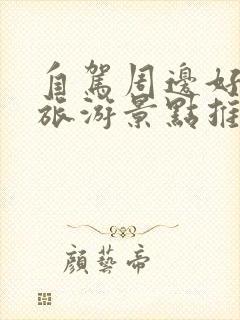 自駕周邊好
旅游景點推
顔藝帝